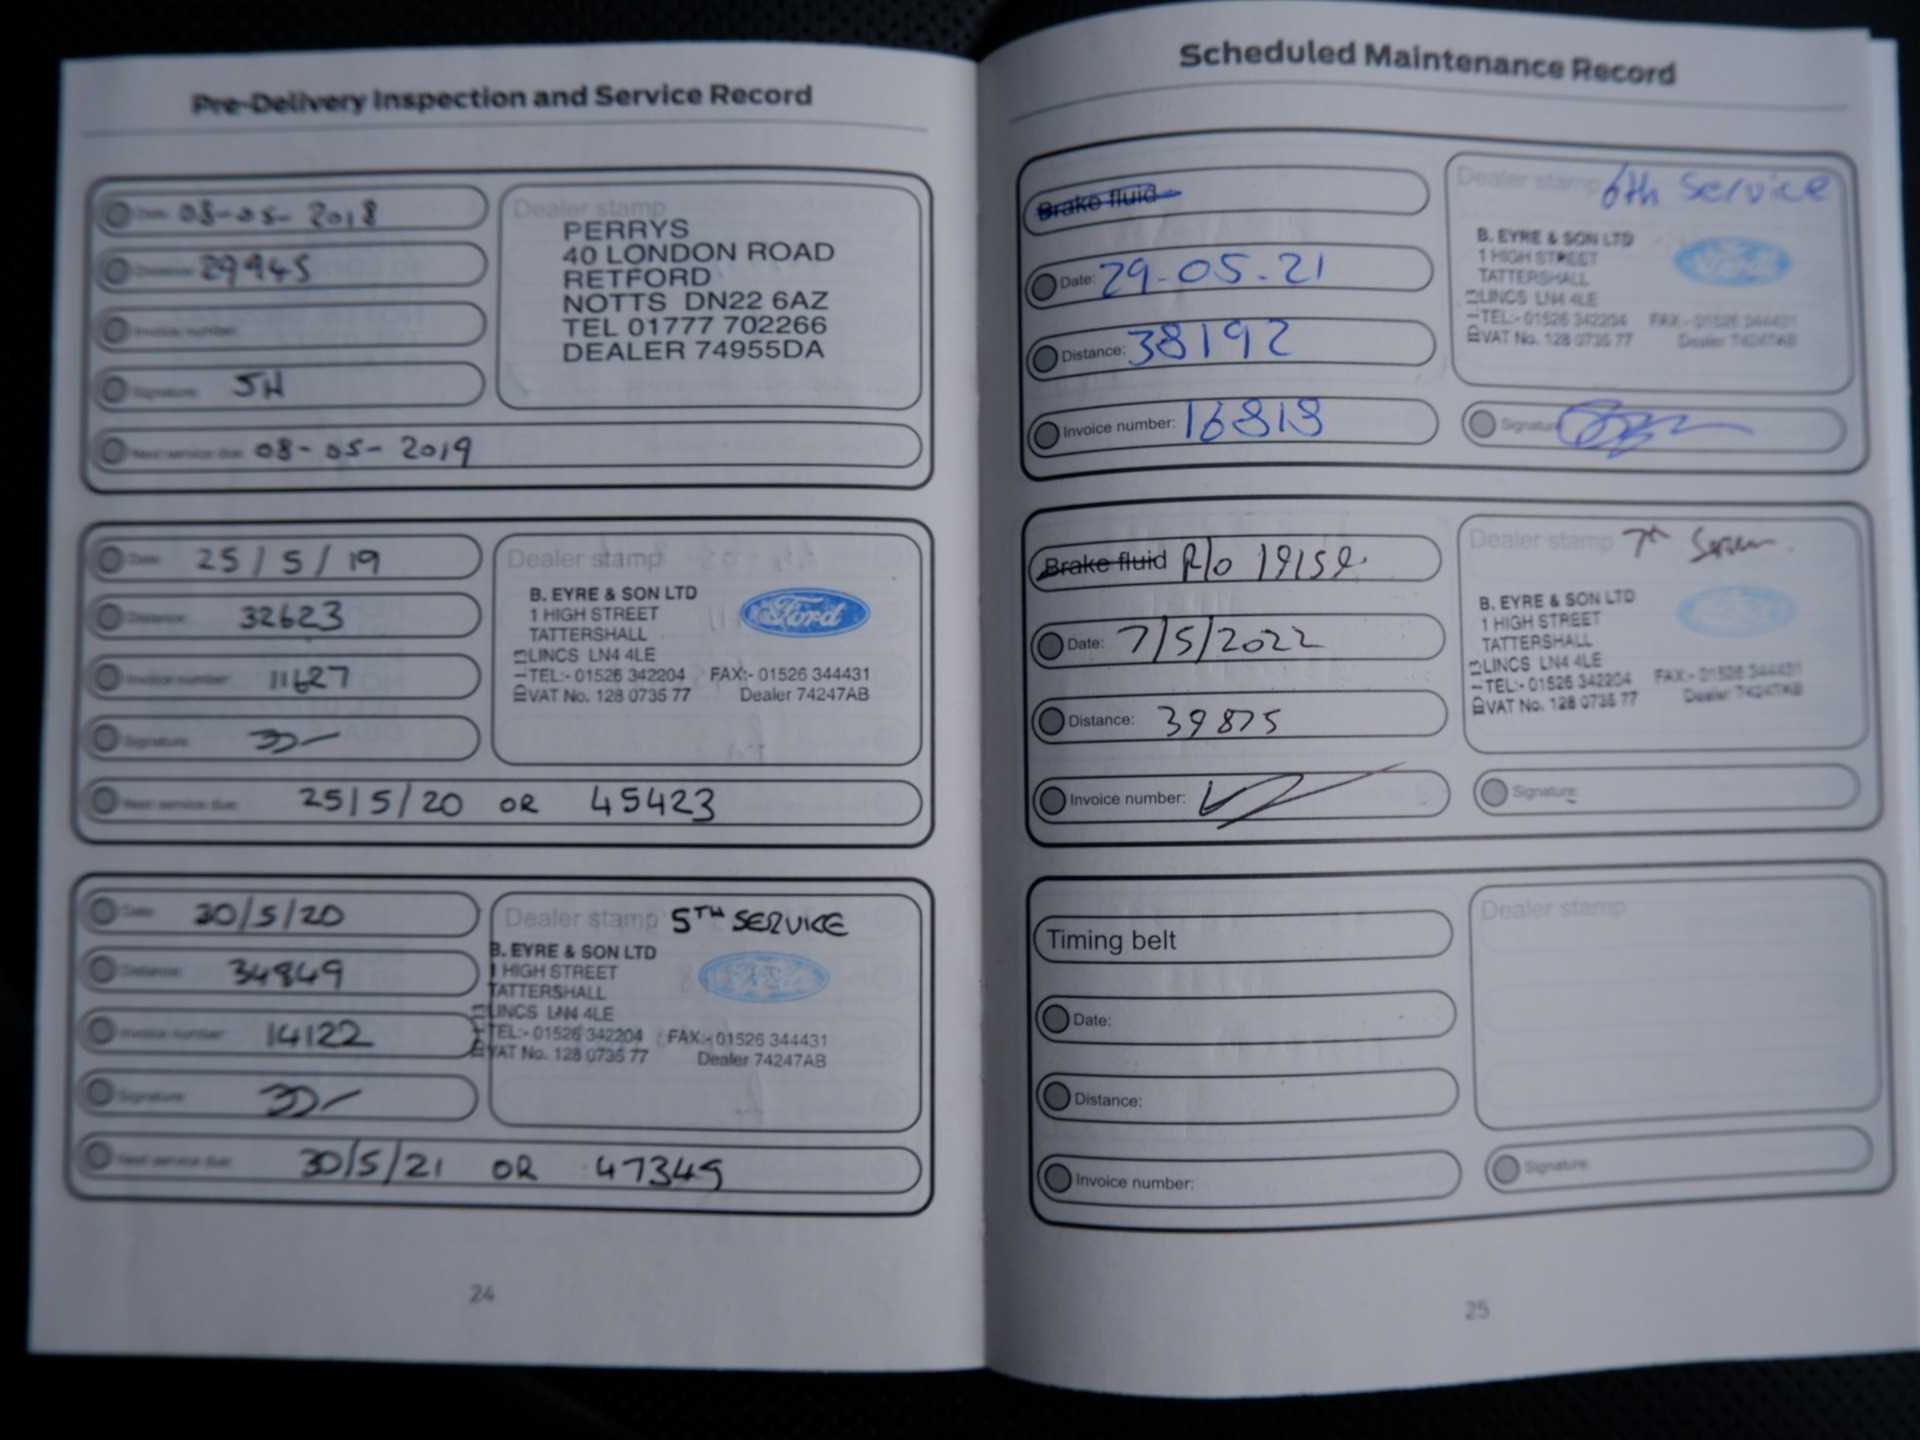 Pre-Delivery Inspection and Service Record
Date: 08-05-2018
Distance: 29945
Invoice number:
Signature: JH
Next service due: 08-05-2019
Dealer stamp
PERRYS
40 LONDON ROAD
RETFORD
NOTTS DN22 6AZ
TEL 01777 702266
DEALER 74955DA
Date: 25/5/19
Distance: 32623
Invoice number: 11627
Signature:
Next service due: 25/5/20 OR 45423
Dealer stamp
B. EYRE & SON LTD
1 HIGH STREET
TATTERSHALL
LINCS LN4 4LE
TEL:- 01526 342204 FAX:- 01526 344431
VAT No. 128 0735 77 Dealer 74247AB
Ford
Date: 30/5/20
Distance: 34849
Invoice number: 14122
Signature:
Next service due: 30/5/21 OR 47349
Dealer stamp 5TH SERVICE
B. EYRE & SON LTD
1 HIGH STREET
TATTERSHALL
LINCS LN4 4LE
TEL:- 01526 342204 FAX:- 01526 344431
VAT No. 128 0735 77 Dealer 74247AB
24
Scheduled Maintenance Record
Brake fluid
Date: 29-05-21
Distance: 38192
Invoice number: 16818
Dealer stamp 6th Service
B. EYRE & SON LTD
1 HIGH STREET
TATTERSHALL
LINCS LN4 4LE
TEL:- 01526 342204 FAX:- 01526 344431
VAT No. 128 0735 77 Dealer 74247AB
Ford
Signature:
Brake fluid R/O 19159
Date: 7/5/2022
Distance: 39875
Invoice number:
Dealer stamp 7th
B. EYRE & SON LTD
1 HIGH STREET
TATTERSHALL
LINCS LN4 4LE
TEL:- 01526 342204 FAX:- 01526 344431
VAT No. 128 0735 77 Dealer 74247AB
Signature:
Timing belt
Date:
Distance:
Invoice number:
Dealer stamp
Signature:
25